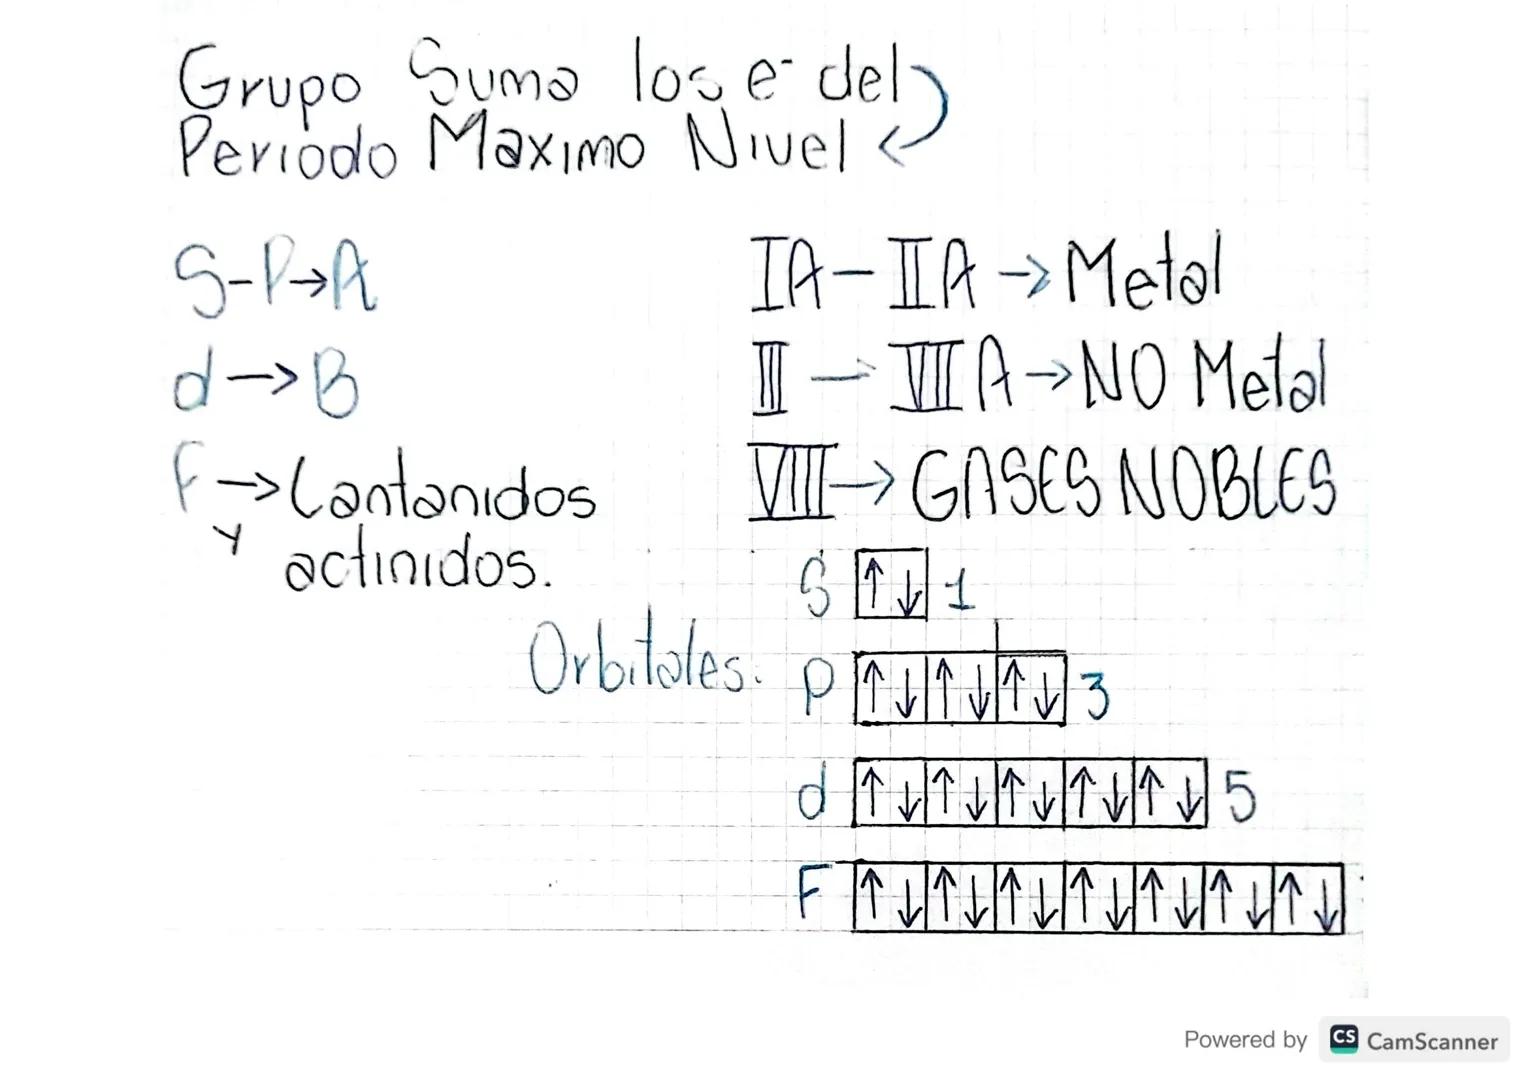 Grupo Suma los e- del
Periodo Maximo Nivel
S-P→A
d→B
F→Lantanidos
y actinidos.
IA-IIA→Metal
III-VIIA→NO Metal
VIII→GASES NOBLES
Orbitales:
S ↑↓ 1
P ↑↓ ↑↓ ↑↓ 3
d ↑↓ ↑↓ ↑↓ ↑↓ ↑↓ 5
F ↑↓ ↑↓ ↑↓ ↑↓ ↑↓ ↑↓ ↑↓
Powered by CS CamScanner